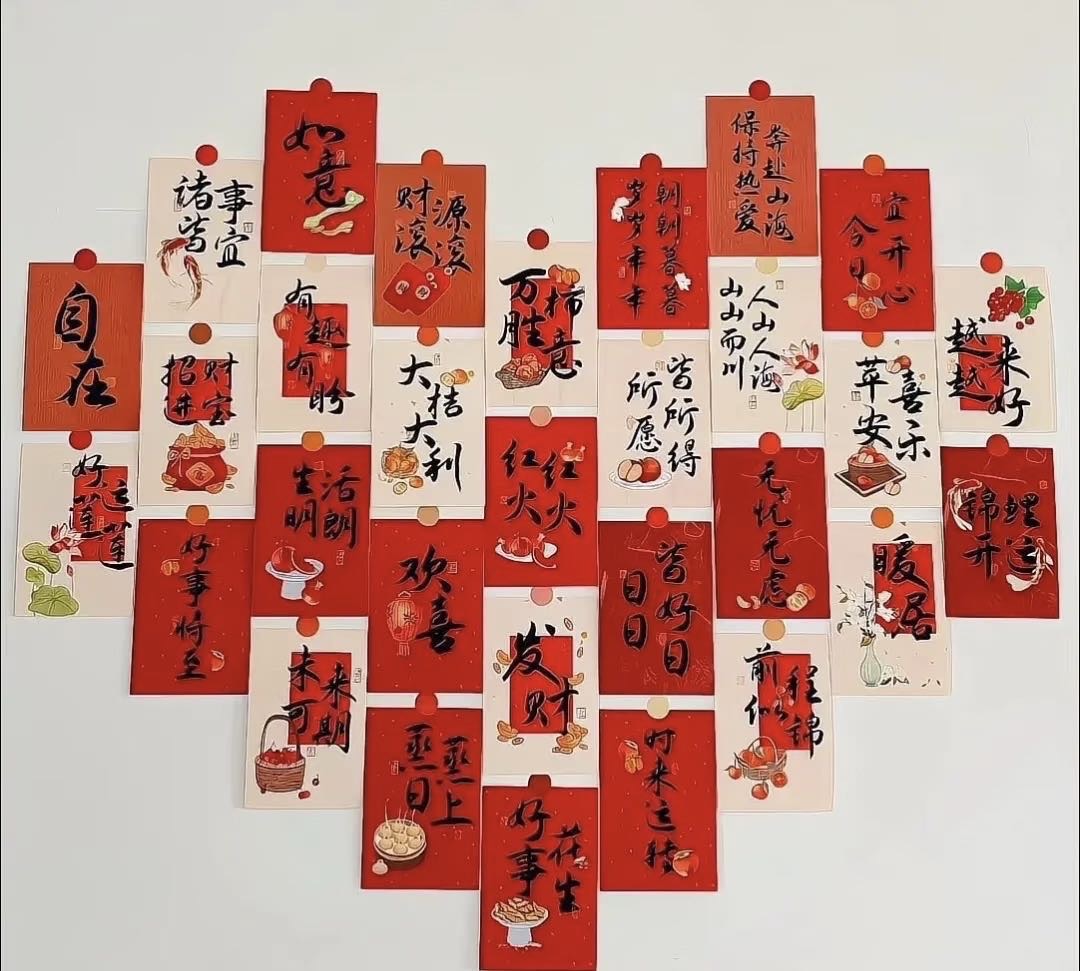 自在
好运
莲莲
诸事
皆宜
招财
进宝
好事将至
如意
有趣
有盼
生活
明朗
未来
可期
财源
滚滚
大桔
大利
欢喜
蒸蒸
日上
万柿
胜意
红红
火火
发财
好事
花生
朝朝暮暮
岁岁年年
所愿
皆所得
日日
皆好日
时来运转
保持热爱
奔赴山海
人山人海
山山而川
无忧无虑
前程
似锦
今日
宜开心
苹安
喜乐
暖居
越来
越好
锦鲤
开运